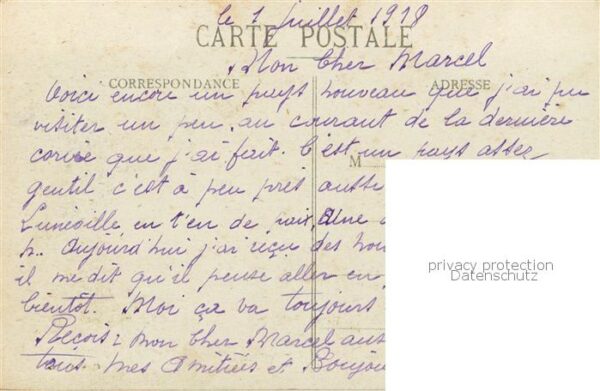 le 1 juillet 1918
CARTE POSTALE
Mon Cher Marcel
CORRESPONDANCE ADRESSE
Voici encore un pays nouveau que j'ai pu
visiter un peu, au courant de la dernière
corvé que j'ai fait. C'est un pays assez
M
gentil c'est à peu près aussi
Lunéville en t'en de paix, Une
Aujourd'hui j'ai reçu des nou
il me dit qu'il pense aller en
bientôt. Moi ça va toujours
Reçois mon Cher Marcel aus
tous mes Amitiés et Bonjou
privacy protection
Datenschutz